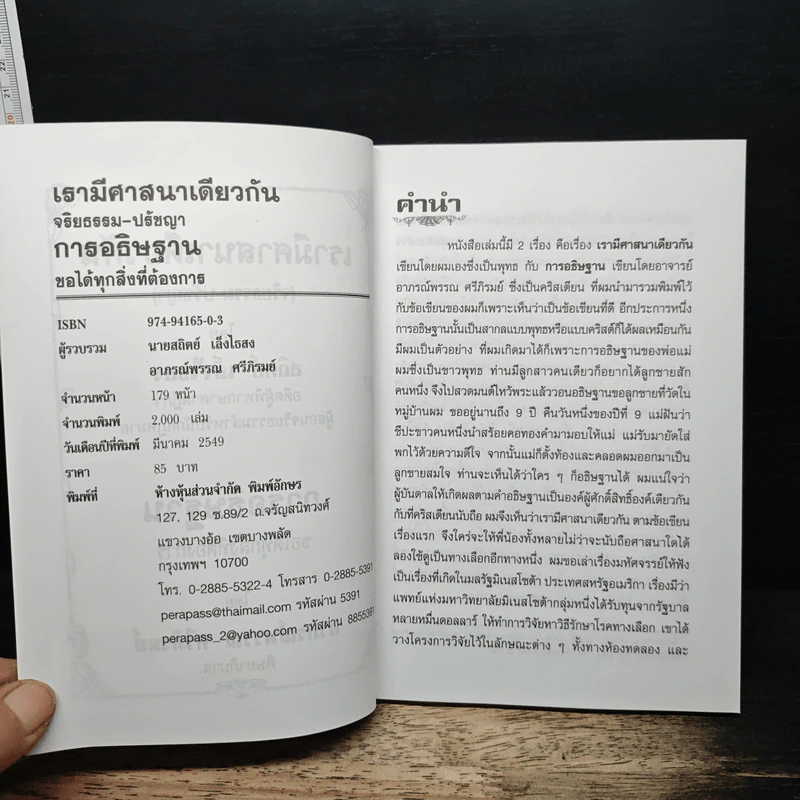 เรามีศาสนาเดียวกัน
จริยธรรม-ปรัชญา
การอธิษฐาน
ขอได้ทุกสิ่งที่ต้องการ
ISBN 974-94165-0-3
ผู้รวบรวม นายสถิตย์ เล็งไธสง
อาภรณ์พรรณ ศรีภิรมย์
จำนวนหน้า 179 หน้า
จำนวนพิมพ์ 2,000 เล่ม
วันเดือนปีที่พิมพ์ มีนาคม 2549
ราคา 85 บาท
พิมพ์ที่ ห้างหุ้นส่วนจำกัด พิมพ์อักษร
127, 129 ซ.89/2 ถ.จรัญสนิทวงศ์
แขวงบางอ้อ เขตบางพลัด
กรุงเทพฯ 10700
โทร. 0-2885-5322-4 โทรสาร 0-2885-5391
perapass@thaimail.com รหัสผ่าน 5391
perapass_2@yahoo.com รหัสผ่าน 8855391
คำนำ
หนังสือเล่มนี้มี 2 เรื่อง คือเรื่อง เรามีศาสนาเดียวกัน
เขียนโดยผมเองซึ่งเป็นพุทธ กับ การอธิษฐาน เขียนโดยอาจารย์
อาภรณ์พรรณ ศรีภิรมย์ ซึ่งเป็นคริสเตียน ที่ผมนำมารวมพิมพ์ไว้
กับข้อเขียนของผมก็เพราะเห็นว่าเป็นข้อเขียนที่ดี อีกประการหนึ่ง
การอธิษฐานนั้นเป็นสากลแบบพุทธหรือแบบคริสต์ก็ได้ผลเหมือนกัน
มีผมเป็นตัวอย่าง ที่ผมเกิดมาได้ก็เพราะการอธิษฐานของพ่อแม่
ผมซึ่งเป็นชาวพุทธ ท่านมีลูกสาวคนเดียวก็อยากได้ลูกชายสัก
คนหนึ่ง จึงไปสวดมนต์ไหว้พระแล้ววอนอธิษฐานขอลูกชายที่วัดใน
หมู่บ้านผม ขออยู่นานถึง 9 ปี คืนวันหนึ่งของปีที่ 9 แม่ฝันว่า
ชีปะขาวคนหนึ่งนำสร้อยคอทองคำมามอบให้แม่ แม่รับมายัดใส่
พกไว้ด้วยความดีใจ จากนั้นแม่ก็ตั้งท้องและคลอดผมออกมาเป็น
ลูกชายสมใจ ท่านจะเห็นได้ว่าใคร ๆ ก็อธิษฐานได้ ผมแน่ใจว่า
ผู้บันดาลให้เกิดผลตามคำอธิษฐานเป็นองค์ผู้ศักดิ์สิทธิ์องค์เดียวกัน
กับที่คริสเตียนนับถือ ผมจึงเห็นว่าเรามีศาสนาเดียวกัน ตามข้อเขียน
เรื่องแรก จึงใคร่จะให้พี่น้องทั้งหลายไม่ว่าจะนับถือศาสนาใดได้
ลองใช้ดูเป็นทางเลือกอีกทางหนึ่ง ผมขอเล่าเรื่องมหัศจรรย์ให้ฟัง
เป็นเรื่องที่เกิดในมลรัฐมิเนสโซต้า ประเทศสหรัฐอเมริกา เรื่องมีว่า
แพทย์แห่งมหาวิทยาลัยมิเนสโซต้ากลุ่มหนึ่งได้รับทุนจากรัฐบาล
หลายหมื่นดอลลาร์ ให้ทำการวิจัยหาวิธีรักษาโรคทางเลือก เขาได้
วางโครงการวิจัยไว้ในลักษณะต่าง ๆ ทั้งทางห้องทดลอง และ